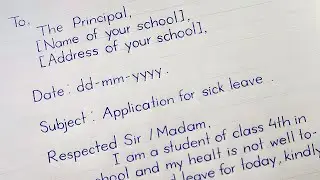 To,
The Principal,
[Name of your school],
[Address of your school],
Date: dd-mm-yyyy.
Subject: Application for sick leave.
Respected Sir/Madam,
I am a student of class 4th in
school and my healt is not well to-
leave for today, kindly